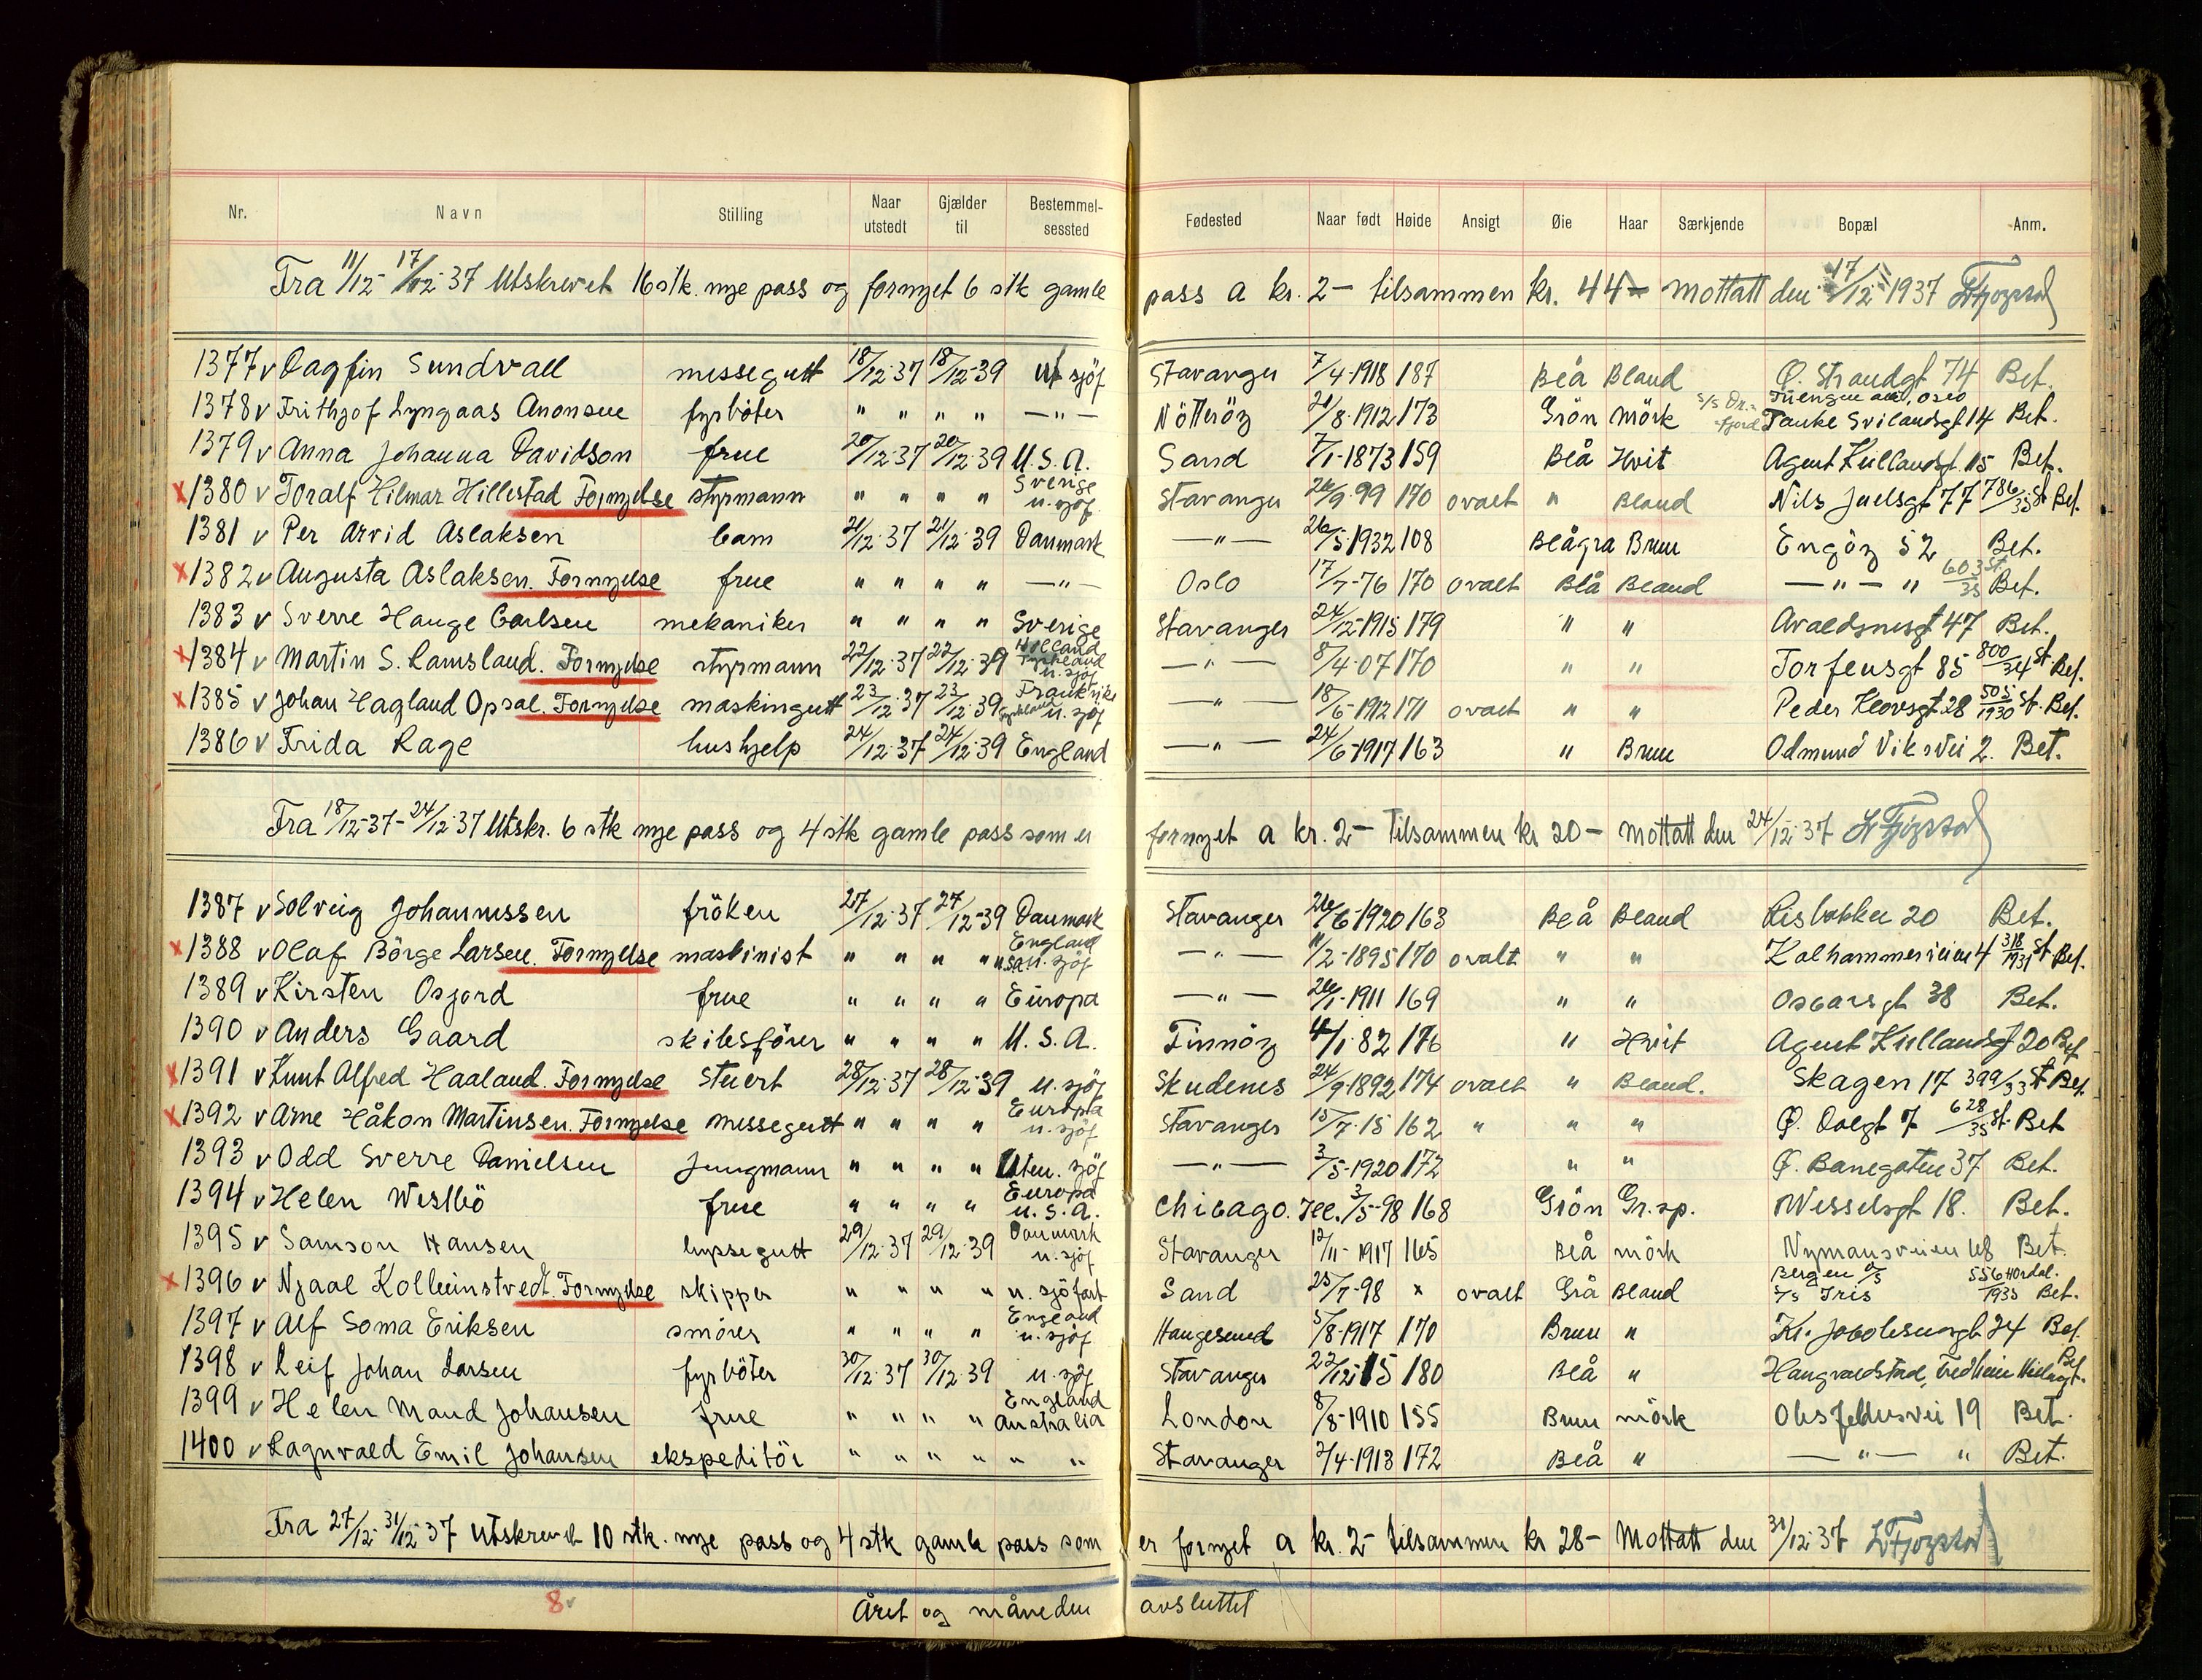 Nr. Navn Stilling Naar utstedt Gjælder til Bestemmelsessted Fødested Naar født Høide Ansigt Øie Haar Særkjende Bopæl Anm.
Fra 11/12- 17/12-37 Utskrevet 16 stk. nye pass og fornyet 6 stk gamle pass a kr. 2- tilsammen kr. 44- Mottatt den 17/12 1937
1377 v Dagfin Sundvall messegutt 18/12-37 18/12-39 ut sjöf Stavanger 7/4-1918 187 Blå Bland Ø. Strandgt 74 Bet.
1378 v Frithjof Lyngaas Anonsen fyrböter " " " " —"— Nötteröy 21/8-1912 173 Grön Mörk Tanke Svilandsgt 14 Bet.
1379 v Anna Johanna Davidson frue 20/12-37 20/12-39 U.S.A. Sand 7/1-1873 159 Blå Hvit Agent Kiellandsgt. 15 Bet.
x 1380 v Toralf Hilmar Hillestad Fornyelse styrmann " " " " Sverige u. sjöf. Stavanger 26/9-99 170 ovalt " Bland Nils Juelsgt 77 786/35 St Bet.
1381 v Per Arvid Aslaksen barn 21/12-37 21/12-39 Danmark —"— 26/5-1932 108 Blågrå Brun Engöy 52 Bet.
x 1382 v Augusta Aslaksen. Fornyelse frue " " " " —"— Oslo 17/7-76 170 ovalt Blå Bland —"— " 603/35 St. Bet.
1383 v Sverre Hauge Carlsen mekaniker " " " " Sverige Stavanger 24/12-1915 179 " " Avaldsnesgt 47 Bet.
x 1384 v Martin S. Ramsland. Fornyelse styrmann 22/12-37 22/12-39 Holland Tyskland u. sjöf —"— 8/4-07 170 " " Torfeusgt 85 800/34 St. Bet.
x 1385 v Johan Hagland Opsal. Fornyelse maskingutt 23/12-37 23/12-39 Frankrike Tyskland u. sjöf —"— 18/6-1912 171 ovalt " " Peder Klowsgt. 28 505/1930 St. Bet.
1386 v Frida Rage hushjelp 24/12-37 24/12-39 England —"— 24/6-1917 163 " Brun Odmund Viksvei 2. Bet.
Fra 18/12-37-24/12-37 Utskr. 6 stk nye pass og 4 stk gamle pass som er fornyet a kr. 2- tilsammen kr 20- Mottatt den 24/12-37
1387 v Solveig Johannessen fröken 27/12-37 27/12-39 Danmark Stavanger 26/6-1920 163 Blå Bland Risbakken 20 Bet.
x 1388 v Olaf Börge Larsen. Fornyelse maskinist " " " " England USA u. sjöf —"— 11/2-1895 170 ovalt " " Kalhammerveien 4 318/1931 St. Bet.
1389 v Kirsten Osjord frue " " " " Europa —"— 26/1-1911 169 " " Oscarsgt 38 Bet.
1390 v Anders Gaard skibsförer " " " " U.S.A. Finnöy 4/1-82 176 " Hvit Agent Kiellandsgt 20 Bet
x 1391 v Knut Alfred Haaland. Fornyelse Stuert 28/12-37 28/12-39 u. sjöf Skudenes 24/9-1892 174 ovalt " Bland. Skagen 17 399/33 St. Bet.
x 1392 v Arne Håkon Martinsen. Fornyelse messegutt " " " " Europa u. sjöf Stavanger 15/7-15 162 " " " Ø. Dalgt 7 628/35 St. Bet
1393 v Odd Sverre Danielsen Jungmann " " " " Uten. sjöf —"— 3/5-1920 172 " " Ø. Banegaten 37 Bet.
1394 v Helen Westbö frue " " " " Europa U.S.A. Chicago. Ill. 3/5-98 168 Grön Gr.sp. Wesselsgt 18. Bet.
1395 v Samson Hansen byssegutt 29/12-37 29/12-39 Danmark u. sjöf Stavanger 12/11-1917 165 Blå mörk Nymansveien 68 Bet.
x 1396 v Njaal Kolbeinstvedt. Fornyelse skipper " " " " u. sjöfart Sand 25/7-98 x ovalt Grå Bland Bergen o/s S/S Iris 556 Hordal. 1935 Bet.
1397 v Alf Soma Eriksen smörer " " " " England u. sjöf Haugesund 5/8-1917 170 Brun " Kr. Jacobsensgt 24 Bet.
1398 v Leif Johan Larsen fyrböter 30/12-37 30/12-39 u. sjöf Stavanger 22/12-15 180 Blå " Haugvaldstad, Bet.
1399 v Helen Maud Johansen frue " " " " England Australia London 8/8-1910 155 Brun mörk 19 Bet.
1400 v Ragnvald Emil Johansen ekspeditör " " " " " " Stavanger 2/4-1913 172 Blå " —"— " Bet.
Fra 27/12- 31/12-37 Utskrevet 10 stk. nye pass og 4 stk gamle pass som er fornyet a kr. 2- tilsammen kr 28- Mottatt den 31/12-37
8 v Året og måneden avsluttet